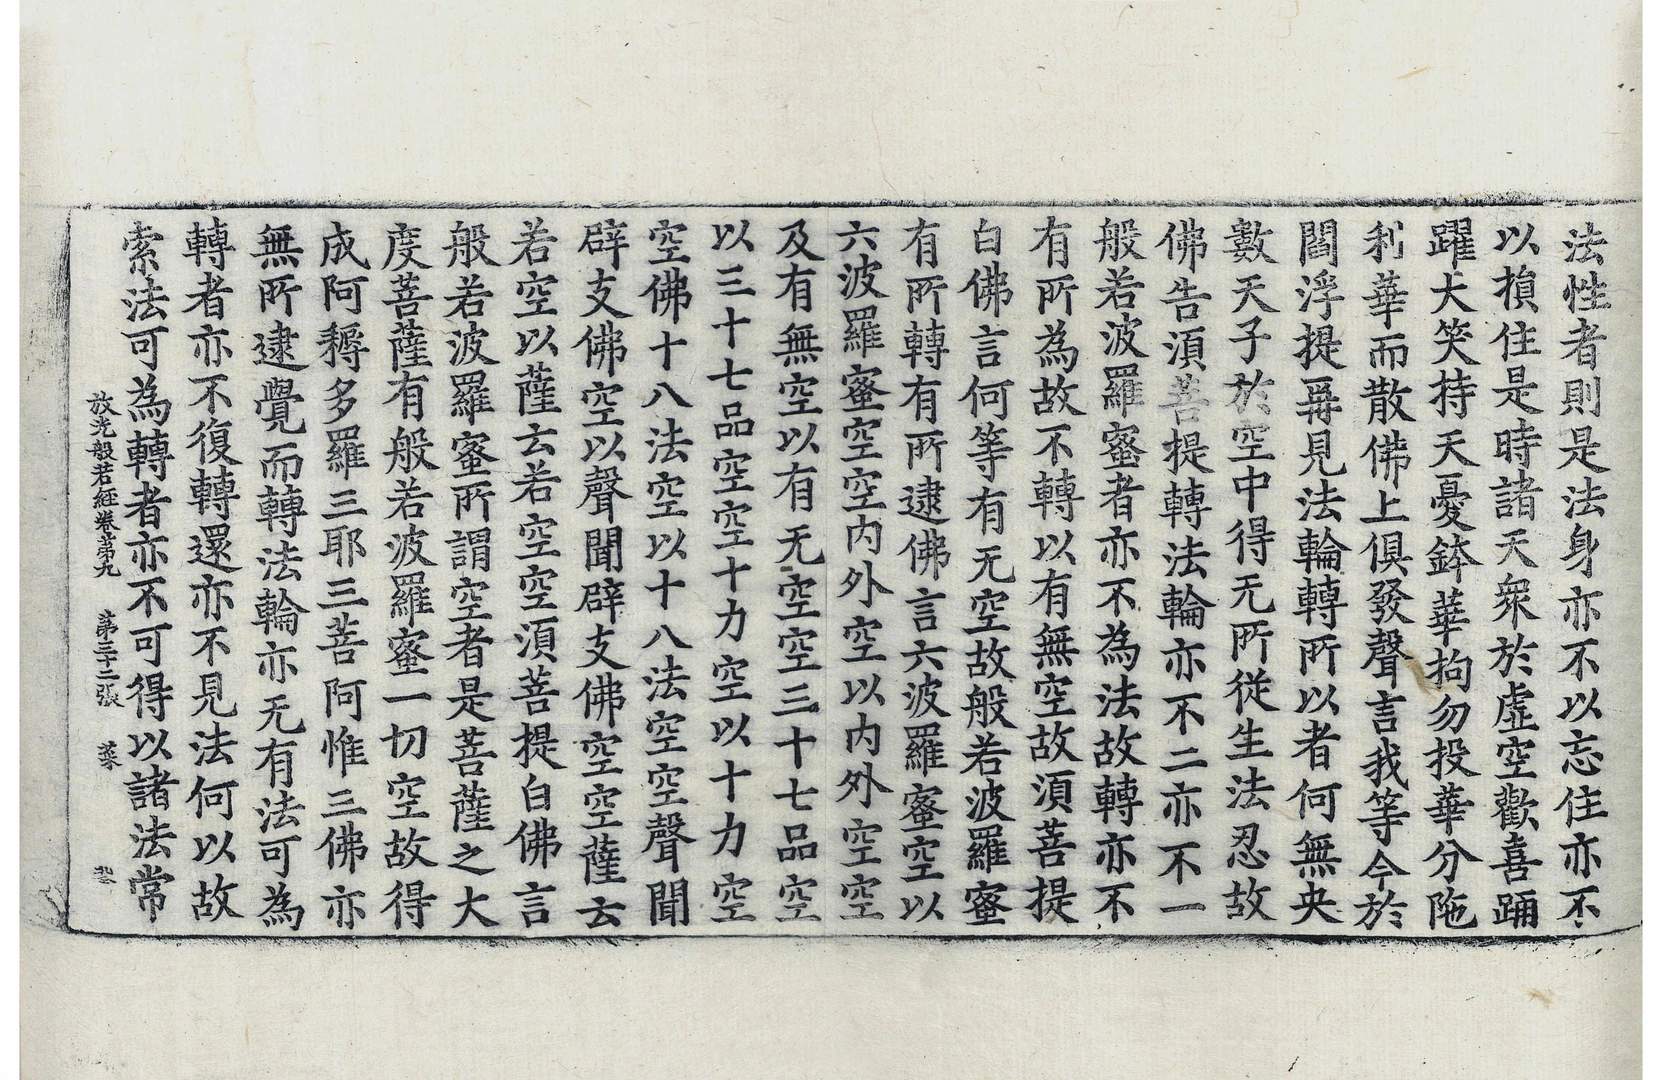 法性者則是法身亦不以忘住亦不
以損住是時諸天衆於虛空歡喜踊
躍大笑持天憂鉢華拘勿投華分陁
利華而散佛上俱發聲言我等今於
閻浮提再見法輪轉所以者何無央
數天子於空中得无所從生法忍故
佛告湏菩提轉法輪亦不二亦不一
般若波羅蜜者亦不為法故轉亦不
有所為故不轉以有無空故湏菩提
白佛言何等有无空故般若波羅蜜
有所轉有所逮佛言六波羅蜜空以
六波羅蜜空空内外空以内外空空
及有無空以有无空空三十七品空
以三十七品空空十力空以十力空
空佛十八法空以十八法空空聲聞
辟支佛空以聲聞辟支佛空空薩云
若空以薩云若空空湏菩提白佛言
般若波羅蜜所謂空者是菩薩之大
度菩薩有般若波羅蜜一切空故得
成阿耨多羅三耶三菩阿惟三佛亦
無所逮覺而轉法輪亦无有法可為
轉者亦不復轉還亦不見法何以故
索法可為轉者亦不可得以諸法常
放光般若経卷第九 第三十二張 菜